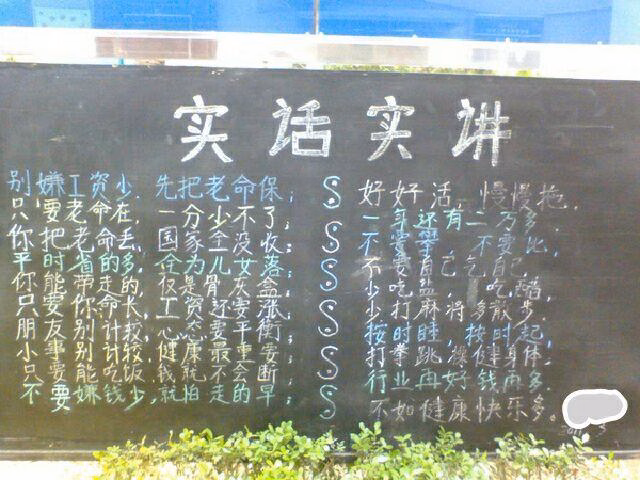 实话实讲
别嫌工资少，先把老命保；
只要老命在，一分少不了；
你把老命丢，国家全没收；
平时省的多，全为儿女落；
你能带走的，仅是骨灰盒；
只要你命长，工资还要涨；
朋友别计较，心态要平衡；
小事别计较，健康最重要；
只要能吃饭，钱就不会断；
不要嫌钱少，就怕走的早；
好好活，慢慢拖，
一年还有二万多，
不要攀，不要比，
不要自己气自己，
少吃盐，多吃醋，
少打麻将多散步，
按时睡，按时起，
打拳跳操健身体，
行业再好钱再多，
不如健康快乐多。